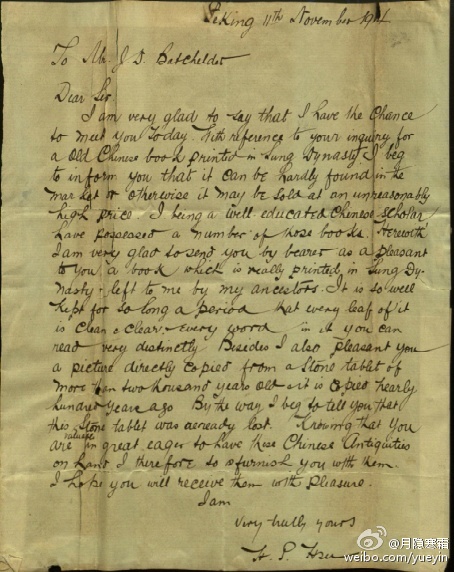 Peking 11th November 1914
To Mr. J. D. Batchelder
Dear Sir
I am very glad to say that I have the Chance
to meet you today. With reference to your inquiry for
a Old Chinese book printed in Sung Dynasty, I beg
to inform you that it can be hardly found in the
market or otherwise it may be sold at an unreasonably
high price. I being a well educated Chinese scholar
have possessed a number of those books. Herewith
I am very glad to send you by bearer as a pleasant
to you a book which is really printed in Sung Dy-
nasty & left to me by my ancestors. It is so well
kept for so long a period that every leaf of it
is clean & clear, & every word in it you can
read very distinctly. Besides I also pleasant you
a picture directly copied from a stone tablet of
more than two thousand years old & it is copied nearly
hundred years ago. By the way I beg to tell you that
this stone tablet was already lost. Knowing that you
are in great eager to have these valuable Chinese Antiquities
on hand I therefore so furnish you with them.
I hope you will receive them with pleasure.
I am
Very truly yours
H. P. Hsu
@月隐寒霜
weibo.com/yueyin